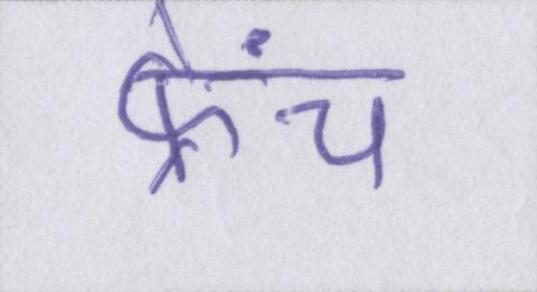 फ्रेंच